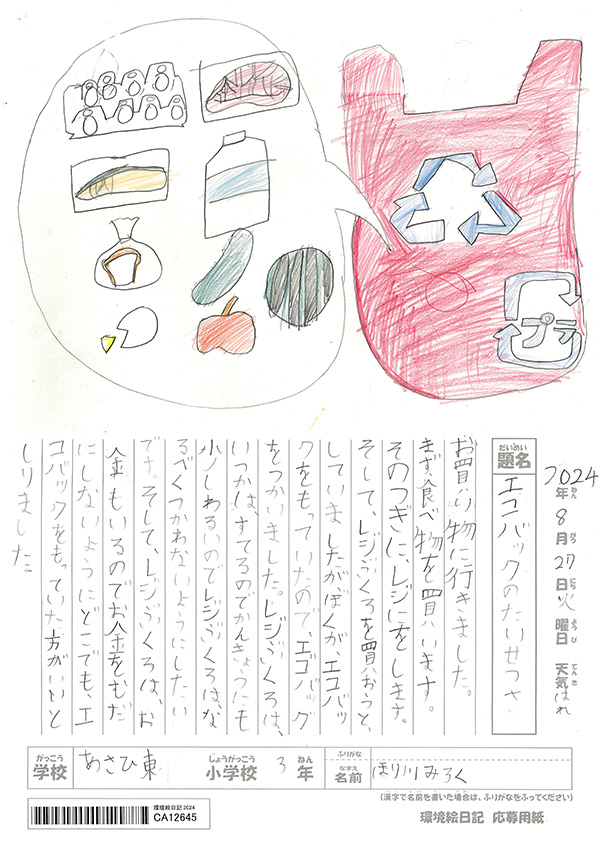 プラ
2024年8月27日火曜日 天気はれ
ねん がつ にち ようび てんき
だいめい
題名
エコバックのたいせつさ
お買い物に行きました。
まず、食べ物を買います。
そのつぎに、レジにをします。
そして、レジぶくろを買おうと、
していましたがぼくが、エコバッ
クをもっていたので、エコバッグ
をつかいました。レジぶくろは、
いつかは、すてるのでかんきょうにも
少しわるいのでレジぶくろは、な
るべくつかわないようにしたい
です。そして、レジぶくろは、お
金もいるのでお金をむだ
にしないようにどこでも、エ
コバックをもっていた方がいいと
しりました
がっこう しょうがっこう ねん
学校 あさひ東 小学校 3年
ふりがな
なまえ
名前 ほり川みろく
(漢字で名前を書いた場合は、ふりがなをふってください)
環境絵日記2024
CA12645
環境絵日記 応募用紙